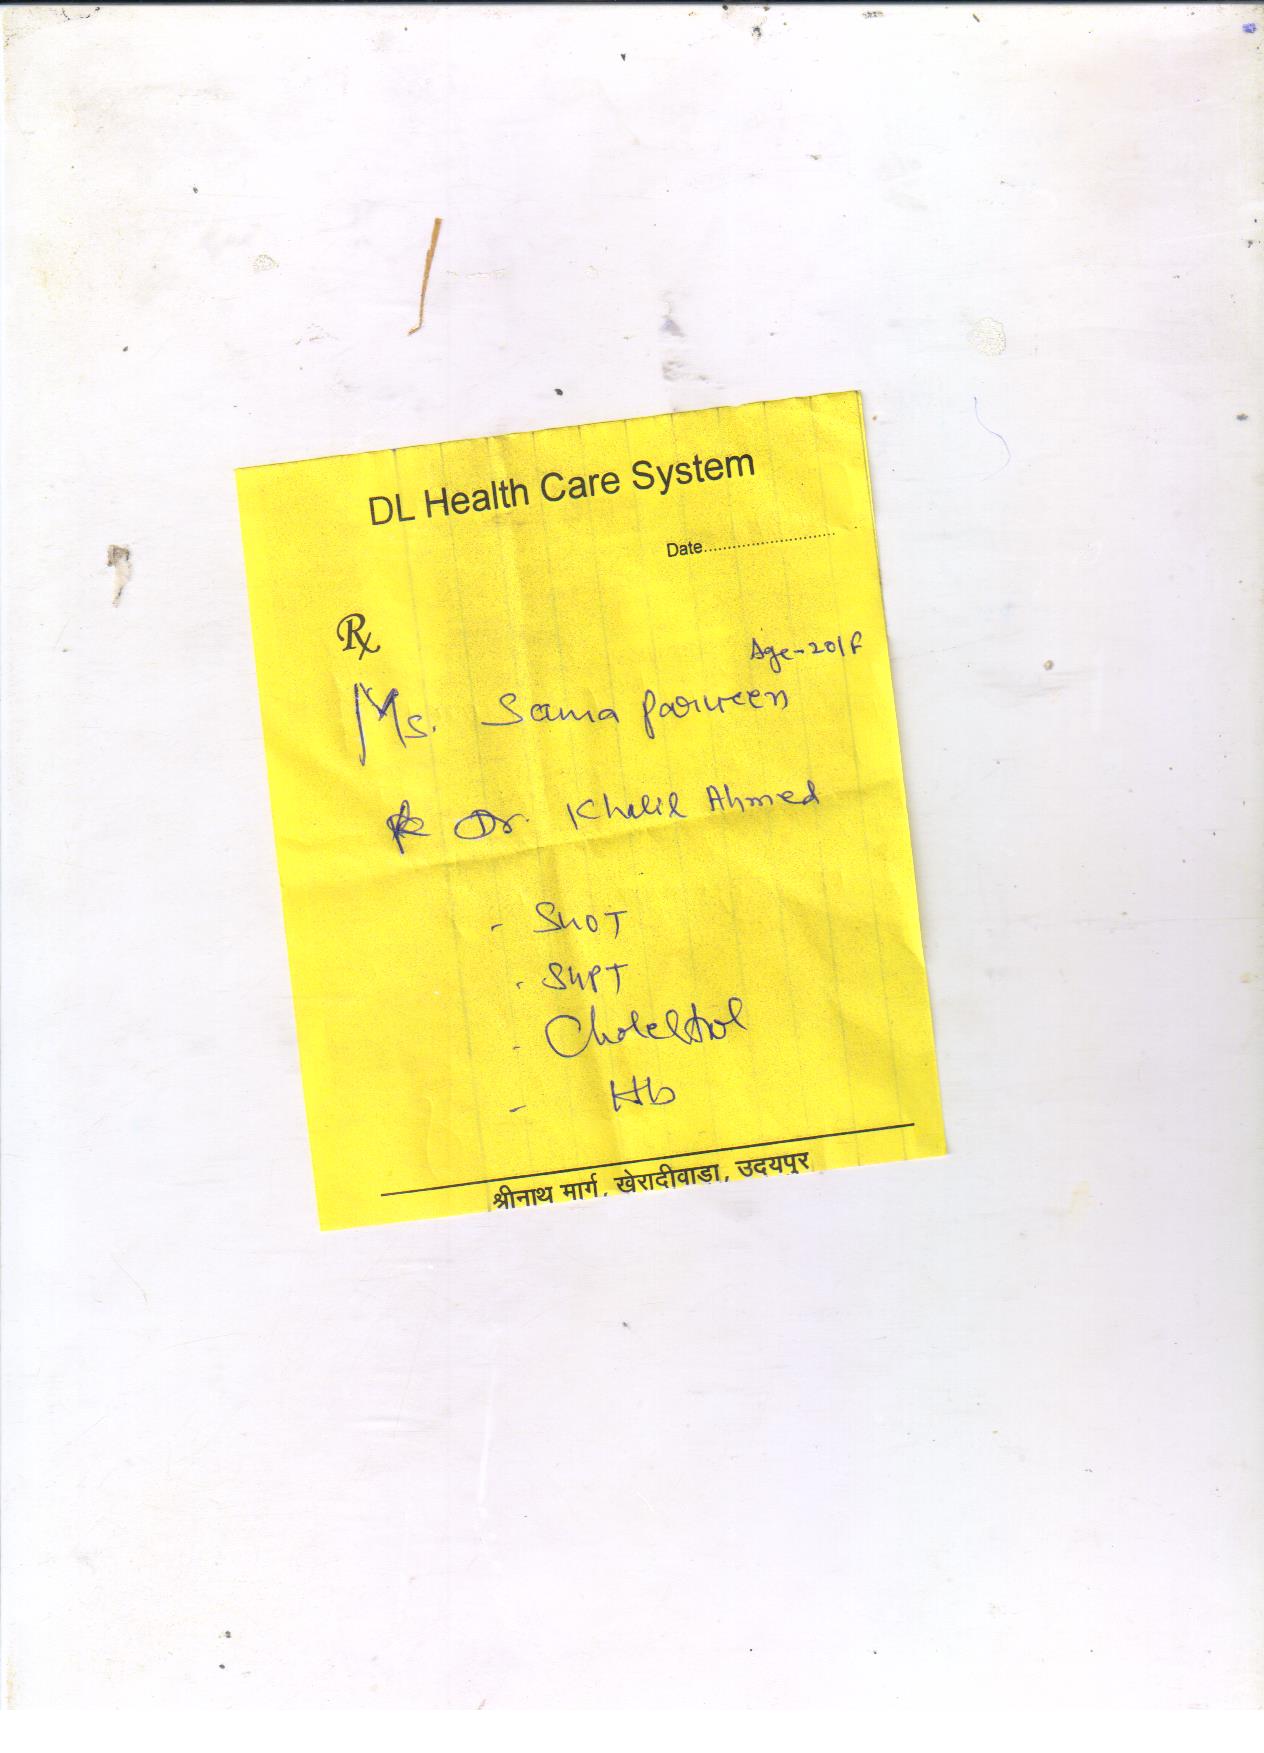 DL Health Care System
Date............................
Rx
Age-20/F
Ms. Sama Parveen
Dr. Khalil Ahmed
- SGOT
- SGPT
- Cholestrol
- Hb
श्रीनाथ मार्ग, खेरादीवाडा, उदयपुर